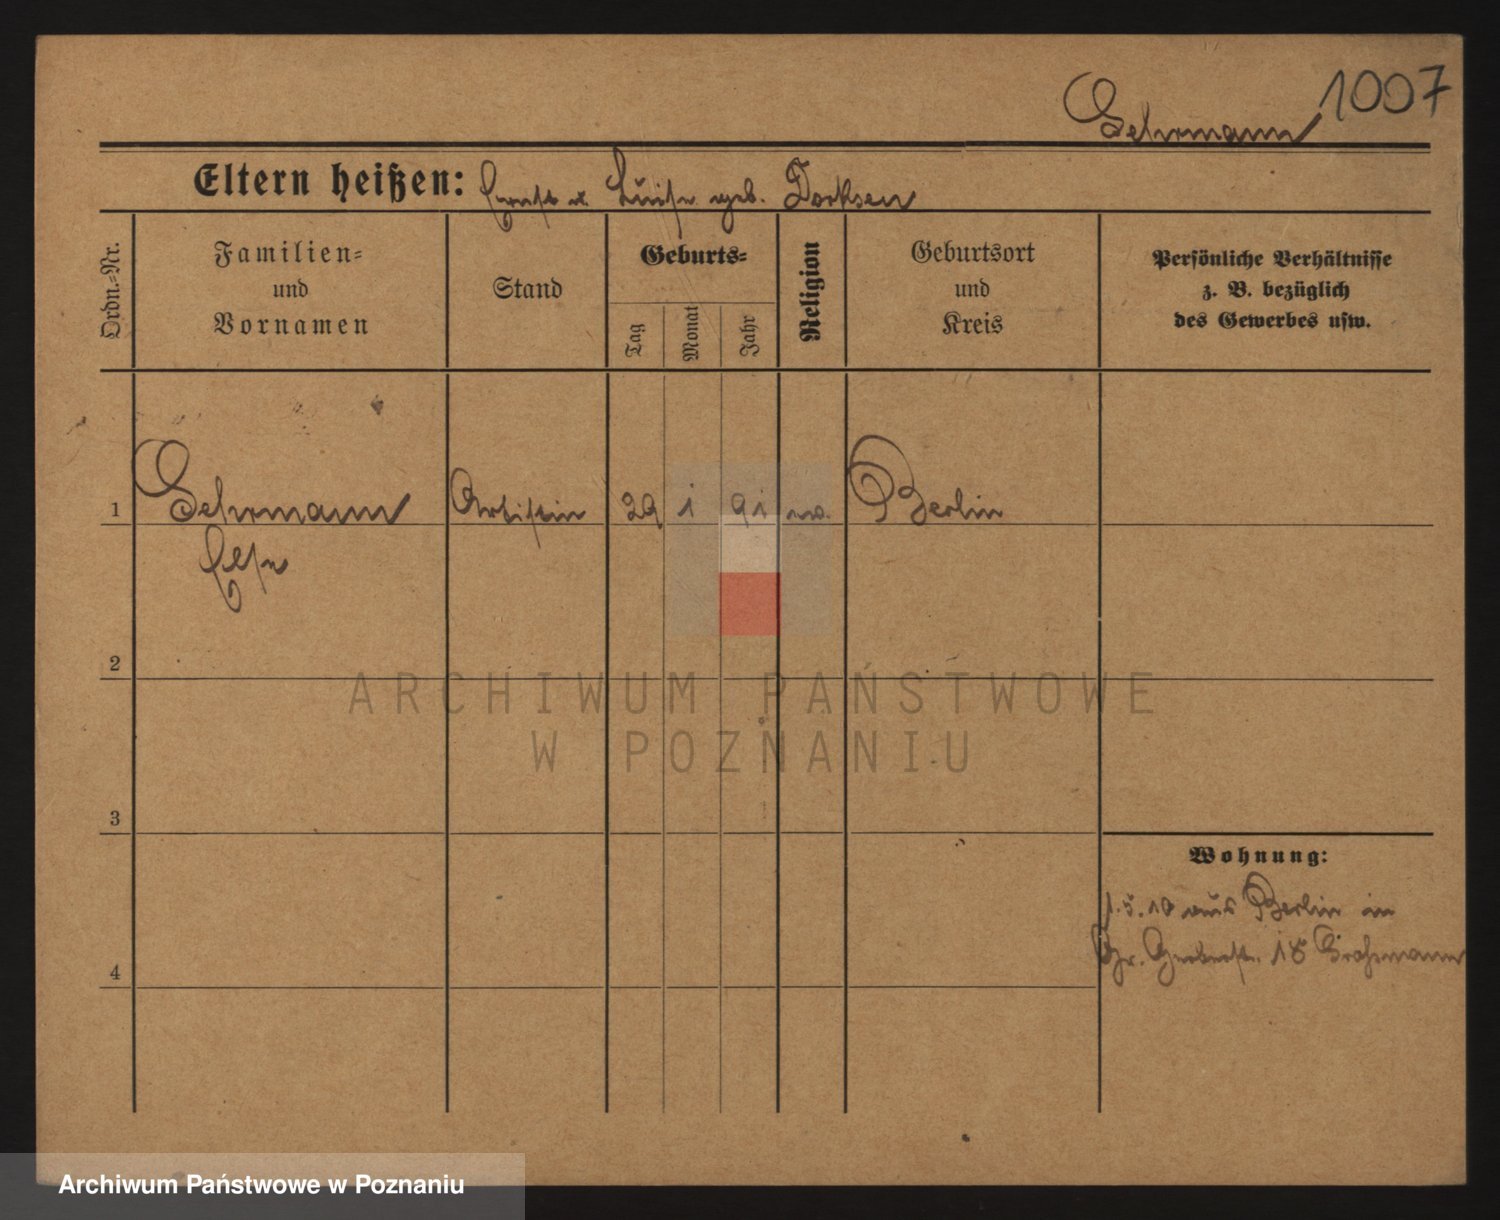 1007
Gehrmann
Eltern heißen: Ernst u. Luise geb. Dorksen
Ordn.=Nr.
Familien=
und
Vornamen
Stand
Geburts=
Tag
Monat
Jahr
Religion
Geburtsort
und
Kreis
Persönliche Verhältnisse
z. B. bezüglich
des Gewerbes usw.
1 Gehrmann Artistin 29 1 91 Berlin
Else
2
ARCHIWUM PAŃSTWOWE
W POZNANIU
3
Wohnung:
1.5.10 aus Berlin in
Gr. Gerberstr. 18 Großmann
4
Archiwum Państwowe w Poznaniu